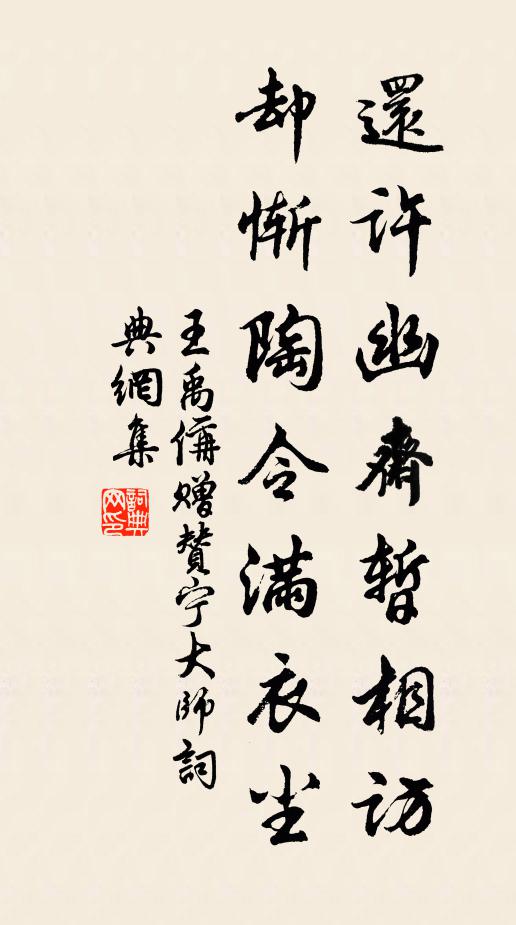 還許幽齋暫相訪
却慚陶令滿衣尘
王禹偁贈贊宁大師詞
典網集
詞典网印